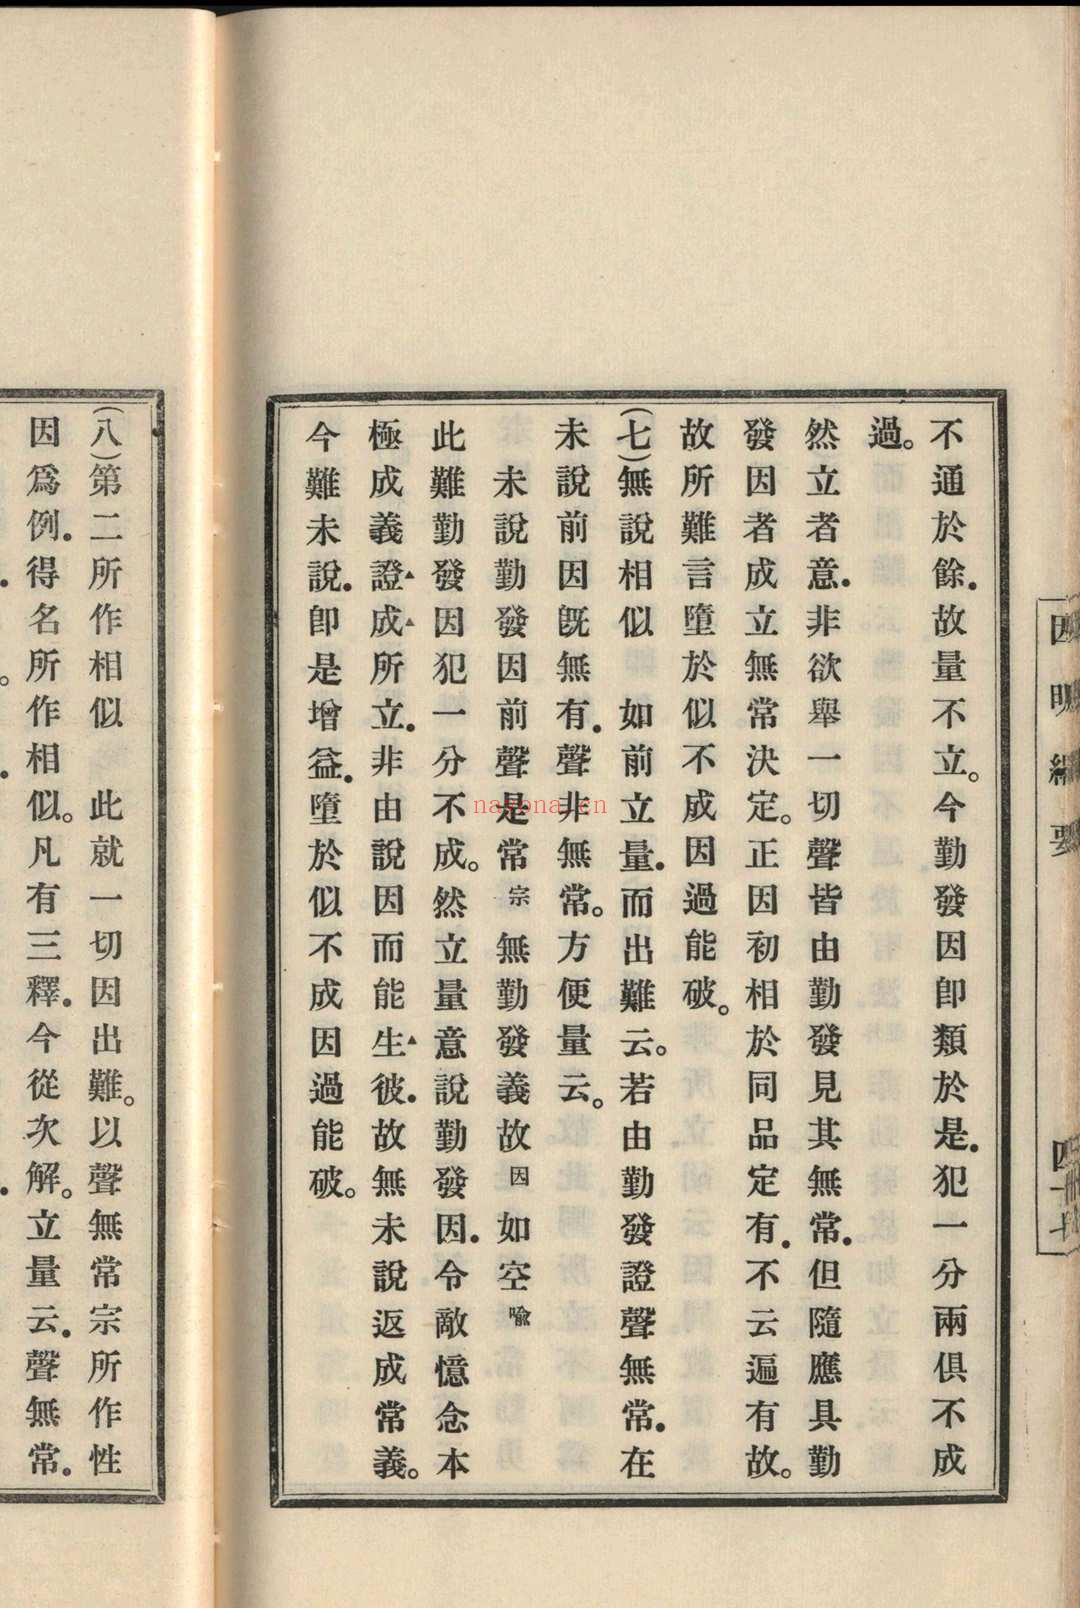 不通於餘.故量不立。今勤發因卽類於是.犯一分兩俱不成
過。
然立者意.非欲舉一切聲皆由勤發見其無常.但隨應具勤
發因者成立無常決定。正因初相於同品定有.不云遍有故。
故所難言墮於似不成因過能破。
(七)無說相似　如前立量.而出難云。若由勤發證聲無常.在
未說前因旣無有.聲非無常。方便量云。
　未說勤發因前聲是常宗無勤發義故因如空喩
此難勤發因犯一分不成。然立量意說勤發因.令敵憶念本
極成義證成所立.非由說因而能生彼.故無未說返成常義。
今難未說.卽是增益.墮於似不成因過能破。
因明綱要
(八)第二所作相似　此就一切因出難。以聲無常宗所作性
因爲例.得名所作相似。凡有三釋.今從次解。立量云.聲無常.
nayona.cn